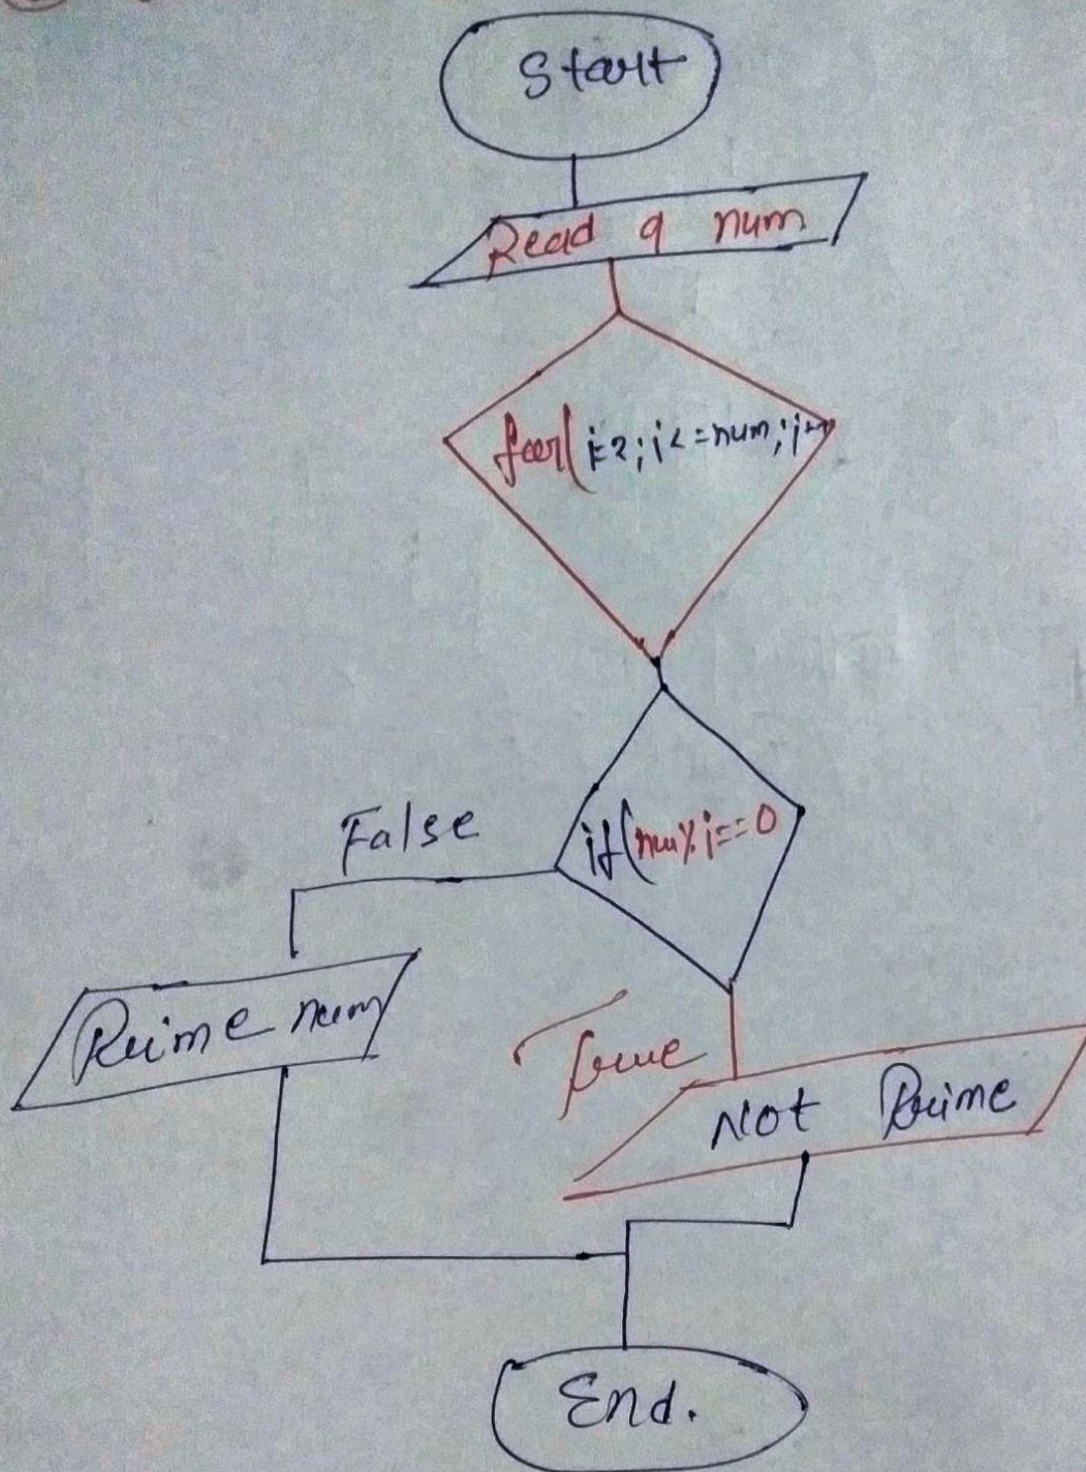 Start
Read a num
for(i=2;i<=num;i++
if(num%i==0
False
Prime num
True
Not Prime
End.